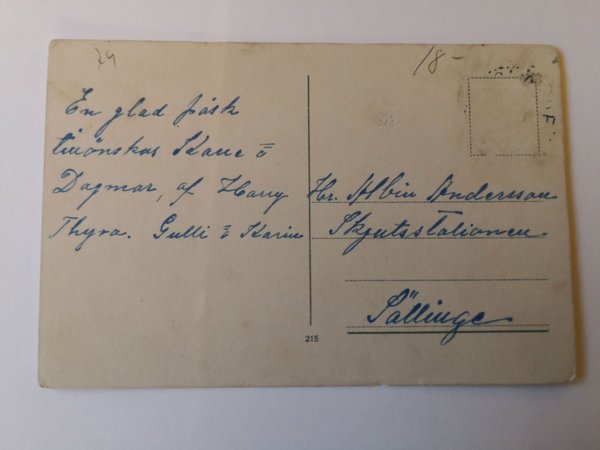 74
18-
En glad påsk
tillönskas Kare &
Dagmar, af Harry
Thyra. Gulli & Karin
Hr. Albin Andersson
Skjutsstationen
Sällinge
215